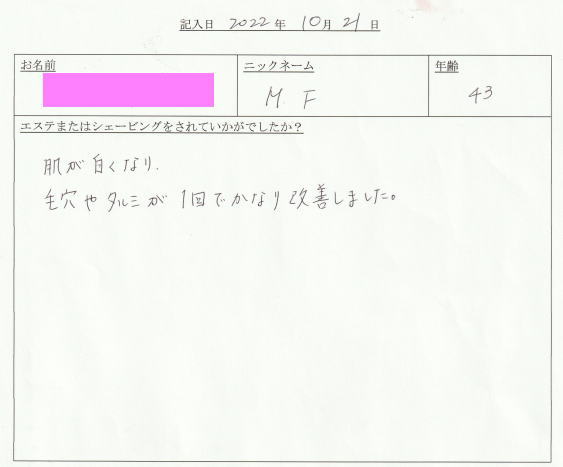 記入日 2022 年 10 月 21 日
お名前 ニックネーム 年齢
M. F 43
エステまたはシェービングをされていかがでしたか？
肌が白くなり.
毛穴やタルミが1回でかなり改善しました。